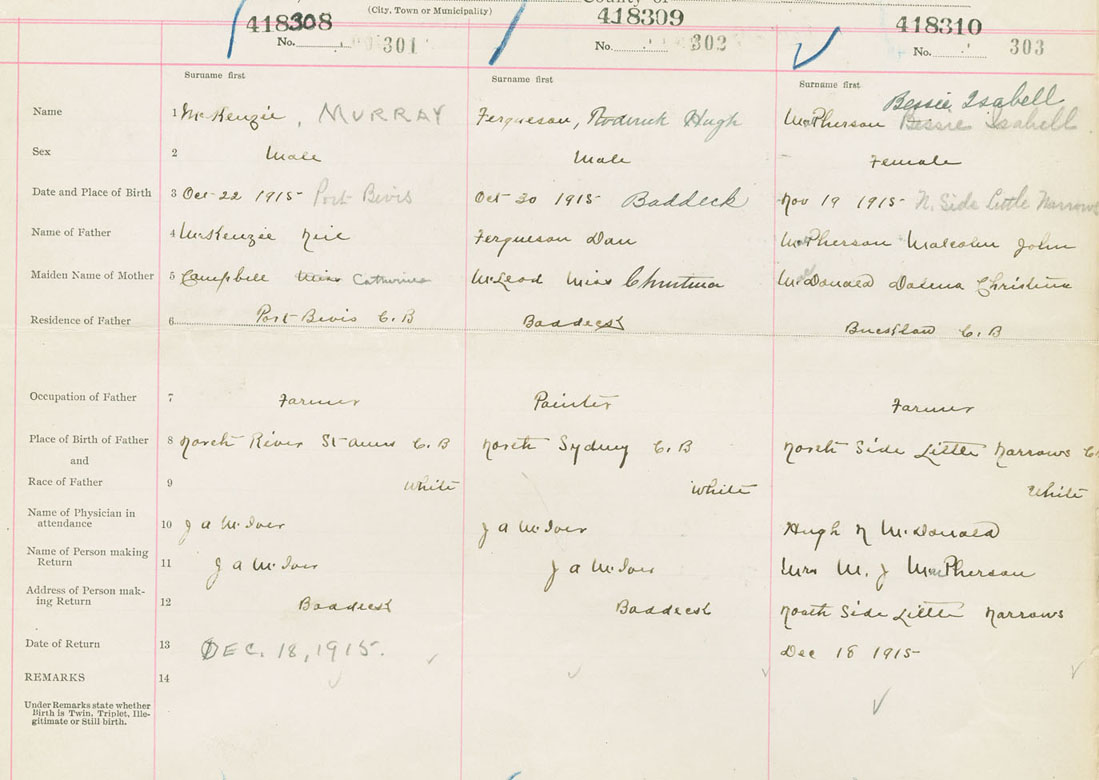 (City, Town or Municipality) County of
418308 418309 418310
No. 301 No. 302 No. 303
Surname first Surname first Surname first
Bessie Isabell
Name 1 McKenzie, MURRAY Fergueson, Roderick Hugh MacPherson Bessie Isabell
Sex 2 Male Male Female
Date and Place of Birth 3 Oct 22 1915 Port Bevis Oct 30 1915 Baddeck Nov 19 1915 N. Side Little Narrows
Name of Father 4 McKenzie Neil Fergueson Dan MacPherson Malcolm John
Maiden Name of Mother 5 Campbell Miss Catherine McLeod Miss Christina MacDonald Dolena Christina
Residence of Father 6 Port Bevis C. B Baddeck Bucklaw C. B
Occupation of Father 7 Farmer Painter Farmer
Place of Birth of Father 8 North River St Anns C. B North Sydney C. B North Side Little Narrows
and
Race of Father 9 White White White
Name of Physician in
attendance 10 J A McIver J A McIver Hugh N McDonald
Name of Person making
Return 11 J A McIver J A McIver Mrs M. J MacPherson
Address of Person mak-
ing Return 12 Baddeck Baddeck North Side Little Narrows
Date of Return 13 DEC. 18, 1915. Dec 18 1915
REMARKS 14
Under Remarks state whether
Birth is Twin, Triplet, Ille-
gitimate or Still birth.